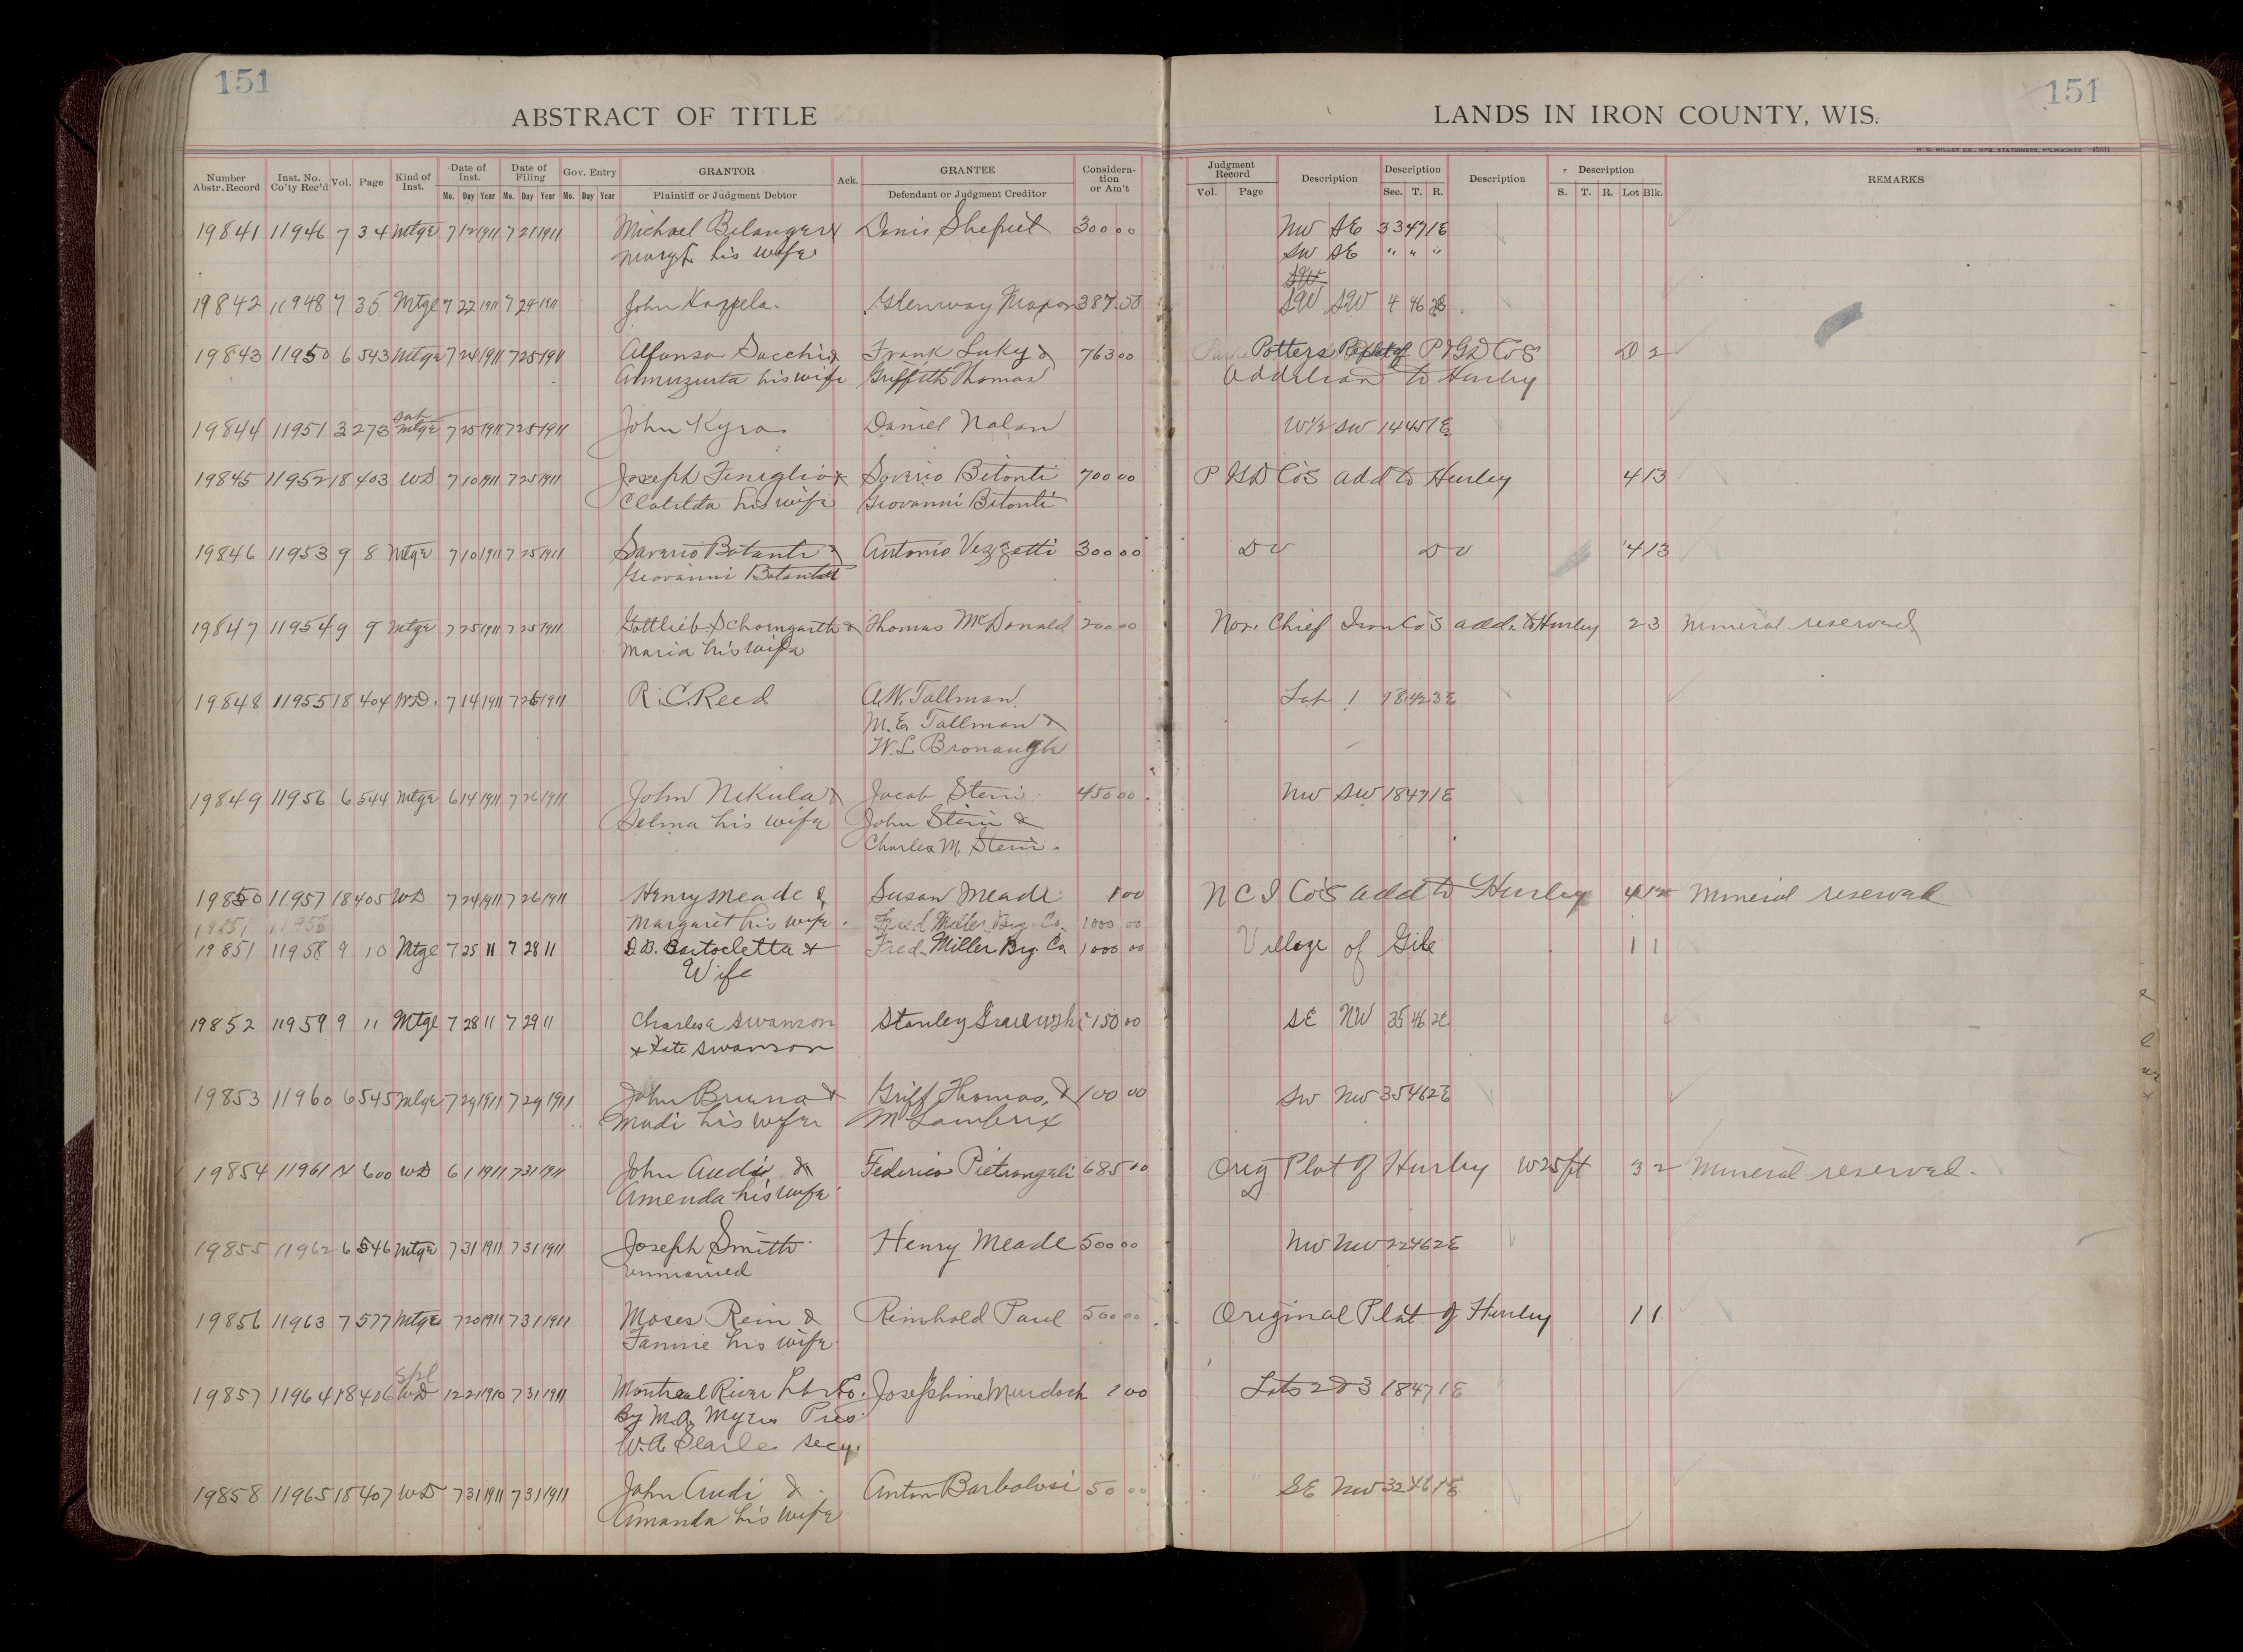 151
151
ABSTRACT OF TITLE
LANDS IN IRON COUNTY, WIS.
H. C. MILLER CO., MFG. STATIONERS, MILWAUKEE
Number Abstr. Record Inst. No. Co'ty Rec'd Vol. Page Kind of Inst. Date of Inst. Date of Filing Gov. Entry GRANTOR Ack. GRANTEE Considera-tion or Am't Judgment Record Description Description Description Description REMARKS
Mo. Day Year Mo. Day Year Mo. Day Year Plaintiff or Judgment Debtor Defendant or Judgment Creditor Vol. Page Sec. T. R. S. T. R. Lot Blk.
19841 11946 7 34 Mtge 7 21 1911 7 21 1911 Michael Belanger & Denis 300 00 NW SE 33 47 1E
his wife SW SE " " "
SW
19842 11948 7 35 Mtge 7 22 1911 7 24 1911 John Glenway Maxon 387.50 SW SW 4 46 2E
19843 11950 6 543 Mtge 7 24 1911 7 25 1911 Alfonso Sacchi & Frank Luky & 763 00 Potters Replat of P & GD Co's D 2
his wife Griffith Thomas Addition to Hurley
sat
19844 11951 3 273 Mtge 7 25 1911 7 25 1911 John Kyro Daniel Nolan W½ SW 14 45 1E
19845 11952 18 403 WD 7 10 1911 7 25 1911 Joseph Feniglio & Saverio Bitonti 700 00 P & GD Co's add to Hurley 4 13
Clotilda his wife Giovanni Bitonti
19846 11953 9 8 Mtge 7 10 1911 7 25 1911 Saverio Botanti & Antonio Vezzetti 300 00 Do Do 4 13
Giovanni
19847 11954 9 9 Mtge 7 25 1911 7 25 1911 Gottlieb Schomgarth & Thomas McDonald 200 00 Nor. Chief Iron Co's add. to Hurley 2 3 Mineral reserved
Maria his wife
19848 11955 18 404 WD. 7 14 1911 7 26 1911 R. C. Reed A.W. Tallman Lot 1 18 42 3E
M. E. Tallman &
W. L. Bronaugh
19849 11956 6 544 Mtge 6 14 1911 7 26 1911 John Nikula & Jacob Stein 450 00 NW SW 18 47 1E
Selma his wife John Stein &
Charles M. Stein.
19850 11957 18 405 WD 7 24 1911 7 26 1911 Henry Meade & Susan Meade 1 00 N C I Co's add to Hurley 4 12 Mineral reserved
19851 11958 Margaret his wife. Fred Miller Brg. Co. 1000 00
19851 11958 9 10 Mtge 7 25 11 7 28 11 D.B. Bartocletta + Fred Miller Brg. Co 1000 00 Village of Gile 1 1
Wife
19852 11959 9 11 Mtge 7 28 11 7 29 11 Charles Swanson Stanley 150 00 SE NW 35 46 2E
+ Kate Swanson
19853 11960 6 545 Mtge 7 29 1911 7 29 1911 John Bruno & Griff Thomas, & 100 00 SW NW 35 46 2E
his wife M Lambrix
19854 11961 N 600 WD 6 1 1911 7 31 1911 John Audi & Federico Pietrangeli 685 00 Orig Plat of Hurley W 25 ft 3 2 Mineral reserved.
Amenda his wife
19855 11962 6 546 Mtge 7 31 1911 7 31 1911 Joseph Smith Henry Meade 500 00 NW NW 22 46 2E
unmarried
19856 11963 7 577 Mtge 7 20 1911 7 31 1911 Moses Rein & Reinhold Paul 500 00 Original Plat of Hurley 1 1
Fannie his wife
Spl
19857 11964 18 406 WD 12 21 1910 7 31 1911 Montreal River Lbr Co. Josephine Murdoch 1 00 Lots 2 & 3 18 47 1E
By M.A. Myers Pres
W.A. Searles Secy.
19858 11965 18 407 WD 7 31 1911 7 31 1911 John Audi & Anton Barbolosi 50 00 SE NW 32 46 1E
Amanda his wife